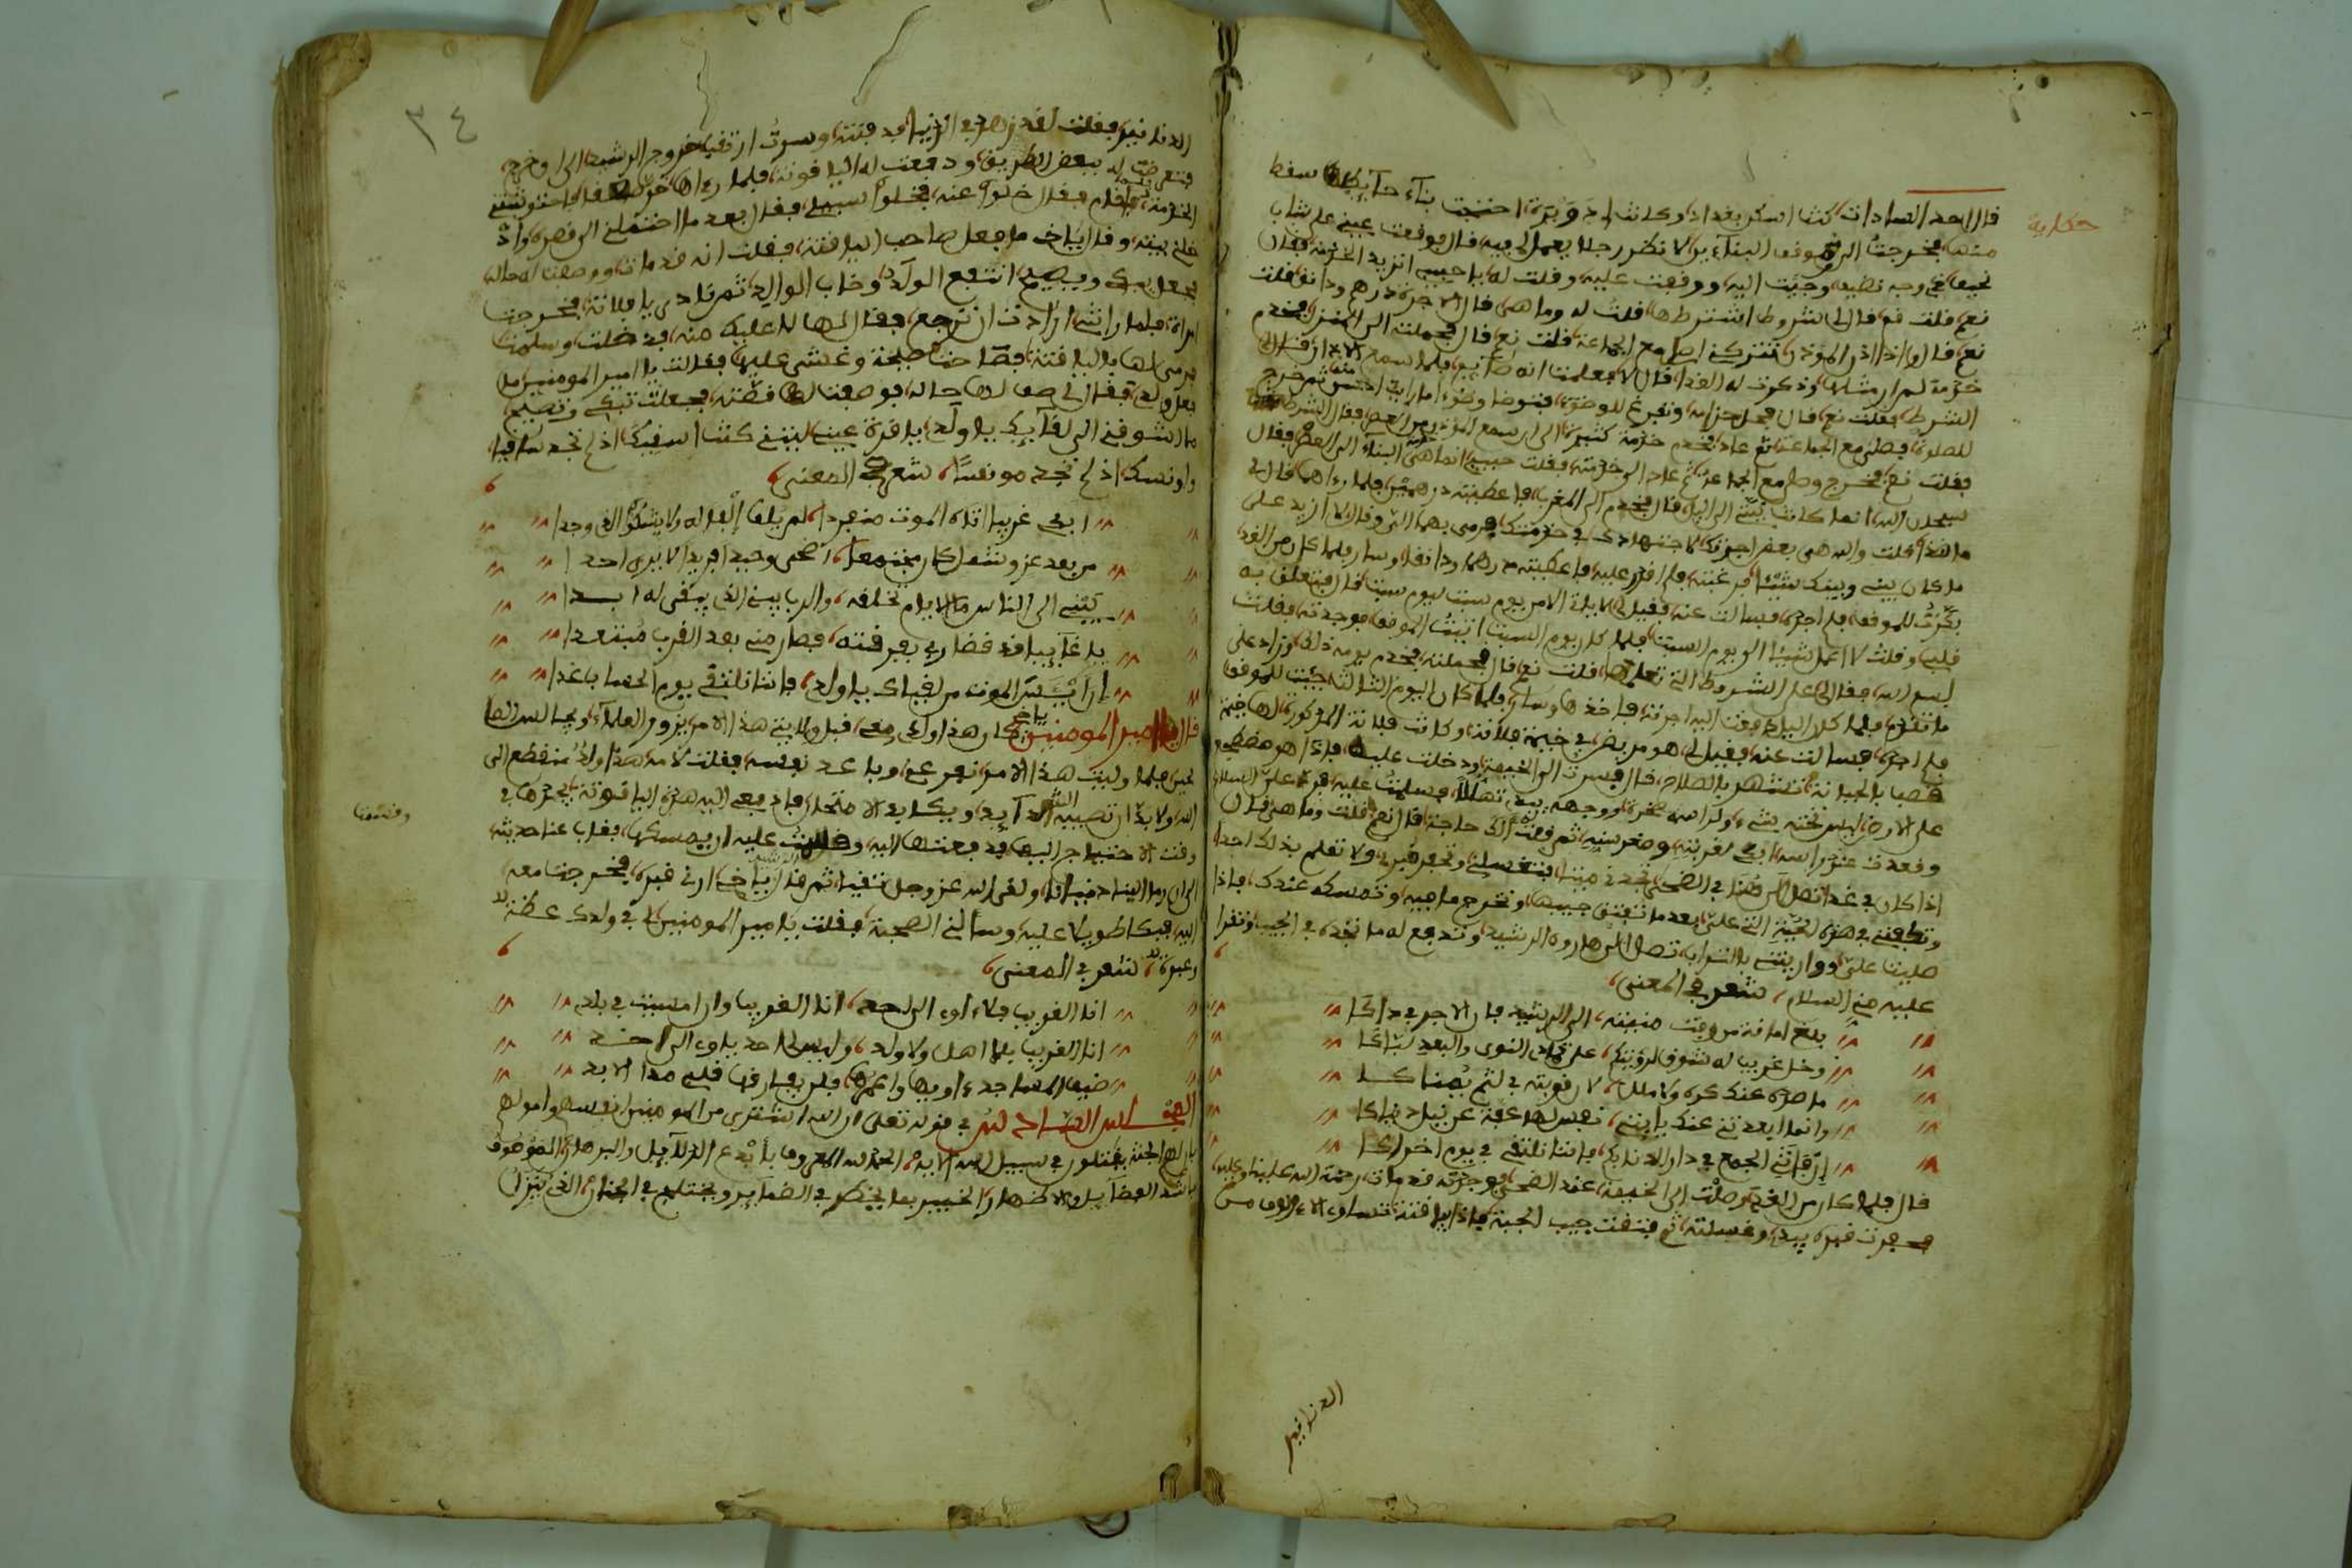 حكاية
قال احد السادات كنت اسكن بغداد وكانت لي دويرة احتجت بناء حايط سقط
منها فخرجت الى موقف البنائين لانظر رجلا يعمل لي فيه قال فوقعت عيني على شاب
نحيف في وجه نظيف وجئت اليه ووقفت عليه وقلت له يا حبيبي اتريد الخدمة فقال
نعم فقلت قم قال لي شروط اشترطها قلت له وما هي قال الاجرة درهم ودانق قلت
نعم قال واذا اذن الموذن تتركني اصلي مع الجماعة قلت نعم قال فحملته الى المنزل فخدم
خدمة لم ار مثلها وذكرت له الغدا قال لا فعلمت انه صائم فلما سمع الاذان قال لي
الشرط فقلت نعم قال فحل حزامه وتفرغ للوضوء فتوضا وضوءا ما رايت احسن منه ثم خرج
للصلوة فصلى مع الجماعة ثم عاد فخدم خدمة كثيرة الى ان سمع المؤذن العصر فقال الشرط
فقلت نعم فخرج وصلى مع الجماعة ثم عاد الى خدمته فقلت حبيبي انما هي خدمة البناء الى العصر فقال
سبحان الله انما كانت نيتي الى الليل قال فخدم الى المغرب فاعطيته درهمين فلما راهما قال لي
ما هذا قلت والله هي بعض اجرتك لاجتهادك في خدمتك فرمى بهما الي وقال لا ازيد على
ما كان بيني وبينك شيئا فرغبته فلم اقدر عليه فاعطيته درهما ودانقا وسار فلما كان من الغد
بكرت للموقف فلم اجده فسالت عنه فقيل لي لا ياتي الا من يوم سبت ليوم سبت قال فتعلق به
قلبي وقلت لا اعمل شيئا الى يوم السبت فلما كان يوم السبت اتيت الموقف فوجدته فقلت
بسم الله فقال لي على الشروط التي تعلمها قلت نعم قال فحملته فخدم يومه ذلك وزاد على
ما تقدم فلما كان الليل دفعت اليه اجرته فاخذها وسار فلما كان اليوم الثالث جيت للموقف
فلم اجده فسالت عنه فقيل لي هو مريض في خيمة فلانة وكانت فلانة المذكورة لها خيمة
بالجبانة تشتهر بالصلاح قال فسرت الى الخيمة ودخلت عليه فاذا هو مضطجع
على الارض ليس تحته شيء
وقعدت عند راسه ابكي لغربته وصغر سنه ثم قلت الك حاجة قال نعم قلت وما هي قال
اذا كان في غد تصل الي هنا في الضحى تجدني ميتا فتغسلني وتحفر قبري ولا تعلم بذلك احدا
وتكفنني في هذه الجبة التي علي بعد ما تفتق جيبها وتخرج ما فيه وتمسكه عندك فاذا
صليت علي وواريتني بالتراب تصل الى هارون الرشيد وتدفع له ما تجده في الجيب وتقرا
عليه مني السلام شعر في المعنى
بلغ امانة من وافت منيته الى الرشيد فان الاجر في ذاكا
وقل غريب له شوق لرؤيتكم على تمادي النوى والبعد لباكا
ما صده عنك كره ولا ملل لان قربته في لثم يمناكا
وانما ابعدتني عنك يا ابتي نفس لها عفة عن نيل دنياكا
ان فاتني الجمع في دار الدنا بكم فانت تلتقي في يوم اخراكا
قال فلما كان من الغد وصلت الى الخيمة عند الضحى فوجدته قد مات رحمة الله علينا وعليه
فحفرت قبره بيدي وغسلته ثم فتقت جيب الجبة فاذا ياقوتة تساوي الالاف من
الدنانير
٣٤
الدنانير فقلت لقد زهد في الدنيا فدفنته وسرت ارتقب خروج الرشيد الى ان خرج
فتعرضت له ببعض الطريق ودفعت له الياقوتة فلما راها
فقال خلوا عنه فخلوا سبيلي فقال بعد ما
بيته وقال يا اخي ما فعل صاحب الياقوتة فقلت انه قد مات ووصفت له حاله
فجعل يبكي ويصيح انتفع الولد وخاب الوالد ثم نادى يا فلانة فخرجت
امراة فلما راتني ارادت ان ترجع فقال لها لا عليك منه فدخلت وسلمت
فرمى لها بالياقوتة فصاحت صيحة وغشي عليها فقالت يا امير المومنين ما
فعل ولدي فقال لي صف لها حاله فوصفت لها قصته فجعلت تبكي وتصيح
ما اشوقني الى لقائك يا ولدي يا قرة عيني ليتني كنت اسقيك اذ لم تجد ساقيا
واونسك اذ لم تجد مونسا شعر في المعنى
ابكي غريبا اتاه الموت منفردا لم يلق الفا له ولا يشكو الذي وجدا
من بعد عز وشمل كان مجتمعا اضحى وحيدا فريدا لا يرى احدا
يا غايبا قد قضا ربي بفرقته فصار مني بعد القرب مبتعدا
ان ايئس الموت من لقياك يا ولدي فانت تلتقي يوم الحساب غدا
قال يا امير المومنين كان هذا ولدي معي قبل ولايتي هذا الامر يزور العلماء ويجالس الصالحين
فلما وليت هذا الامر نفر عني وباعد نفسه فقلت لامه هذا ولد منقطع الى
الله ولا بد ان تصيبه الشدايد ويكابد الامتحان فادفعي اليه هذه الياقوتة يجدها في
وقت الاحتياج اليها فدفعتها اليه
وقد مات
الى ان رما الينا دنيانا ولقي الله عز وجل نقيا ثم قال يا اخي ارني قبره فخرجت معه
اليه فبكا طويلا عليه وسالني الصحبة فقلت يا امير المومنين لي في ولدك عظة
وعبرة شعر في المعنى
انا الغريب فلا اوي الى احد انا الغريب وان امسيت في بلدي
انا الغريب بلا اهل ولا ولد وليس لي احد ياوي الى احد
المساجد ءاويها واعمرها فلن يفارقها قلبي مدا الابد
المجلس السادس في قوله تعلى ان الله اشترى من المومنين انفسهم واموالهم
بان لهم الجنة يقتلون في سبيل الله الاية الحمد لله المعروف بابدع الدلايل والبرهان الموصوف
الخبير بما يخطر في الضماير ويختلج في الجنان الذي تنزل